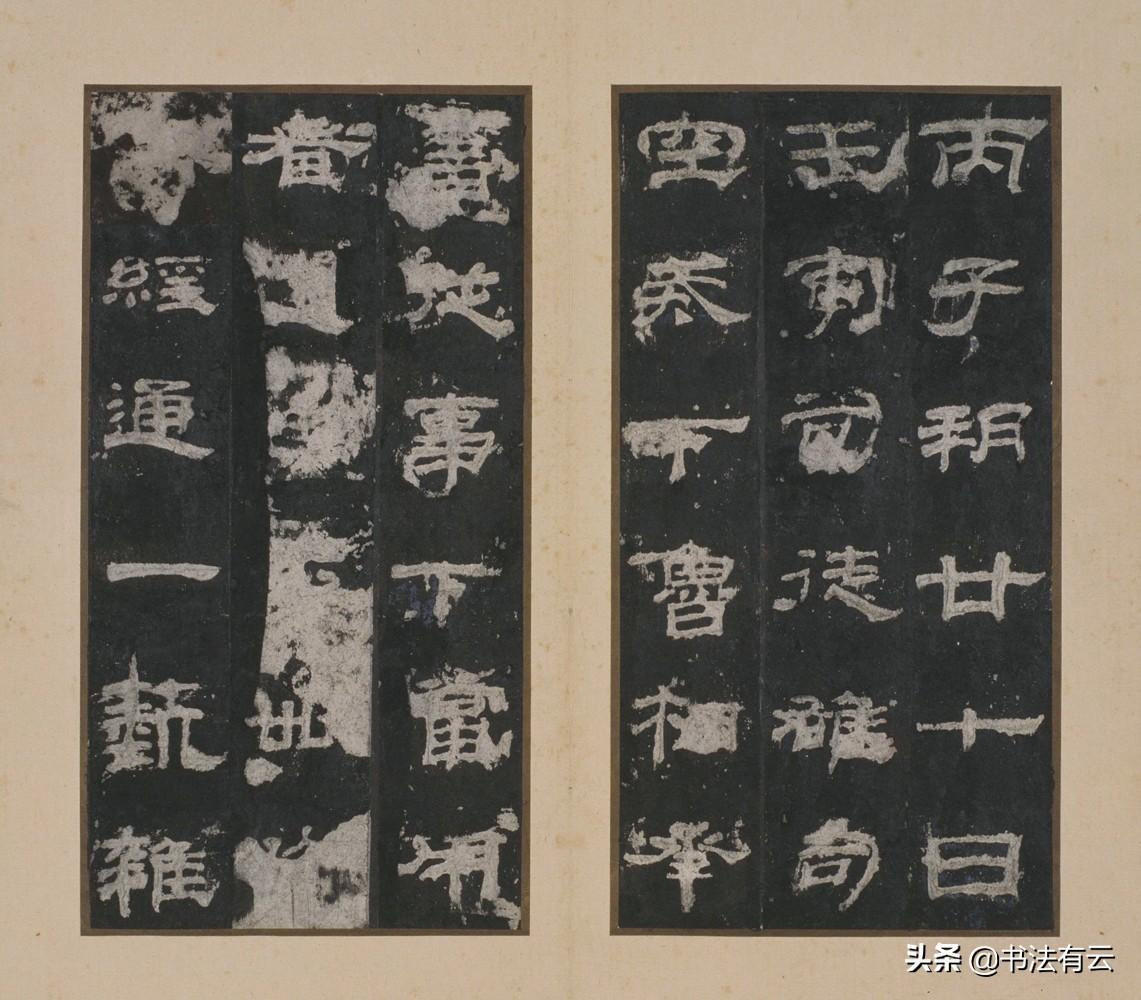 丙子朔廿七日
壬寅司徒雄司
空戒下魯相承
書從事下當用
者卌
經通一藝雜
头条 @书法有云